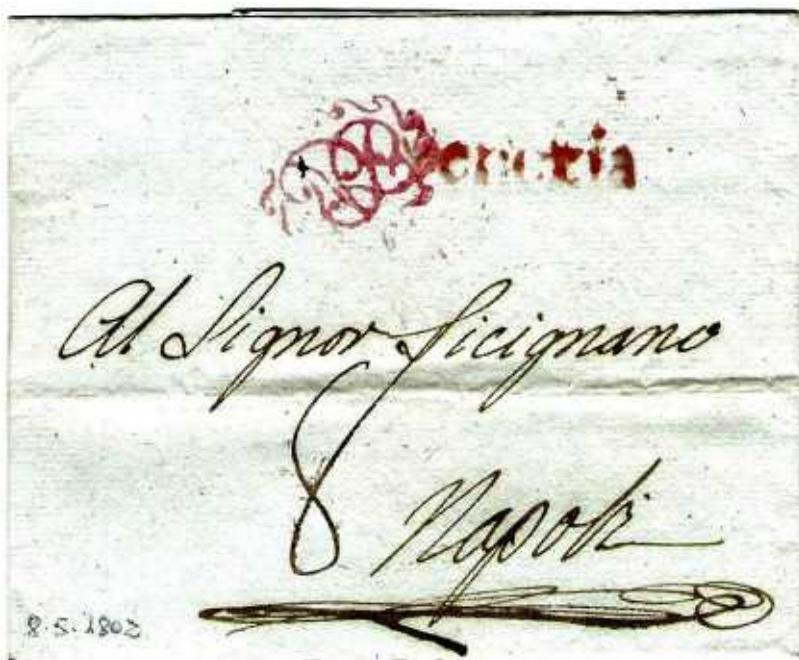 Al Signor Sicignano
8
Napoli
8.5.1802